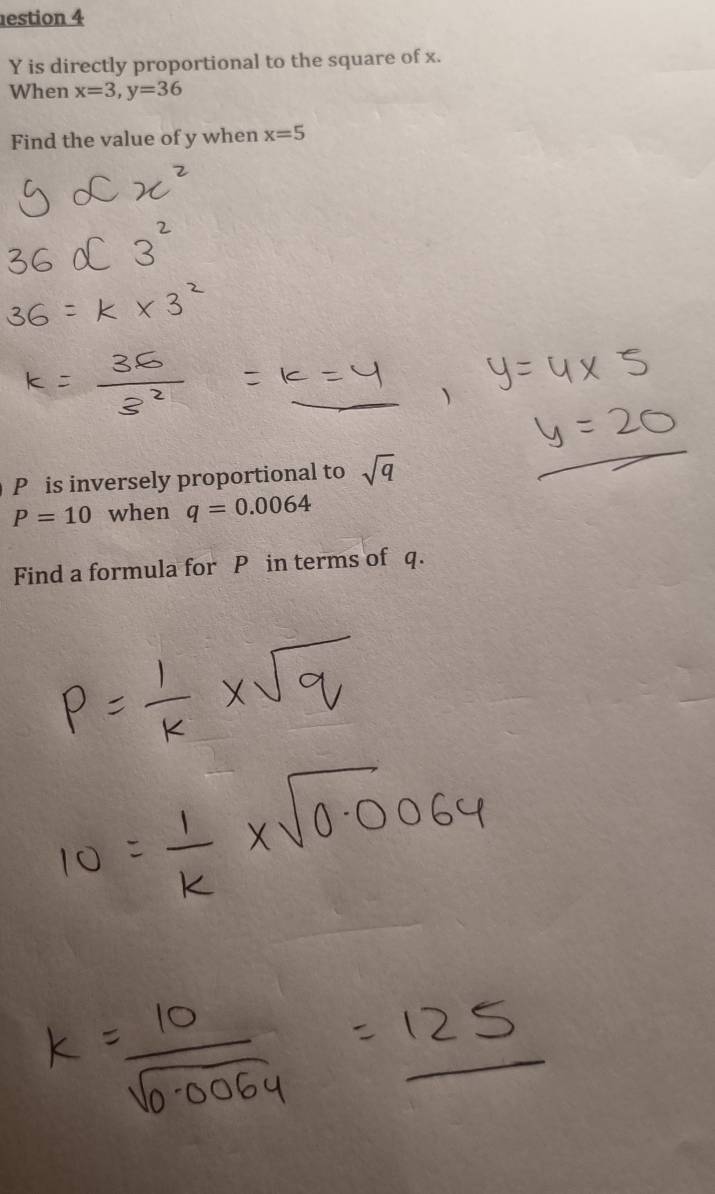 uestion 4
Y is directly proportional to the square of x.
When x=3, y=36
Find the value of y when x=5
y ∝ x²
36 ∝ 3²
36 = k × 3²
k = 36/3² = k = 4 , y = 4 × 5
y = 20
P is inversely proportional to √q
P = 10 when q = 0.0064
Find a formula for P in terms of q.
P = 1/k × √q
10 = 1/k × √0.0064
k = 10/√0.0064 = 125